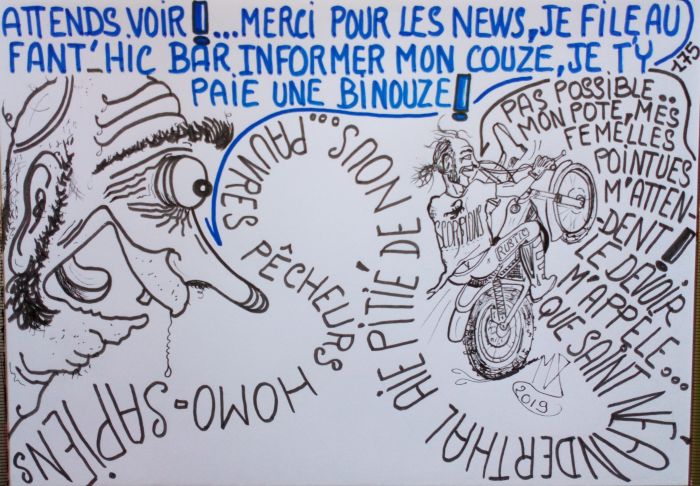 ATTENDS VOIR !...MERCI POUR LES NEWS, JE FILE AU
FANT'HIC BAR INFORMER MON COUZE, JE T'Y
PAIE UNE BINOUZE !
175
PAS POSSIBLE...
MON POTE, MES
FEMELLES
POINTUES
M'ATTEN
DENT !
LE DEVOIR
M'APPÈLE...
QUE SAINT NÉANDERTHAL AIE PITIÉ DE NOUS... PAUVRES PÊCHEURS HOMO-SAPIENS
SCORPIONS
2019